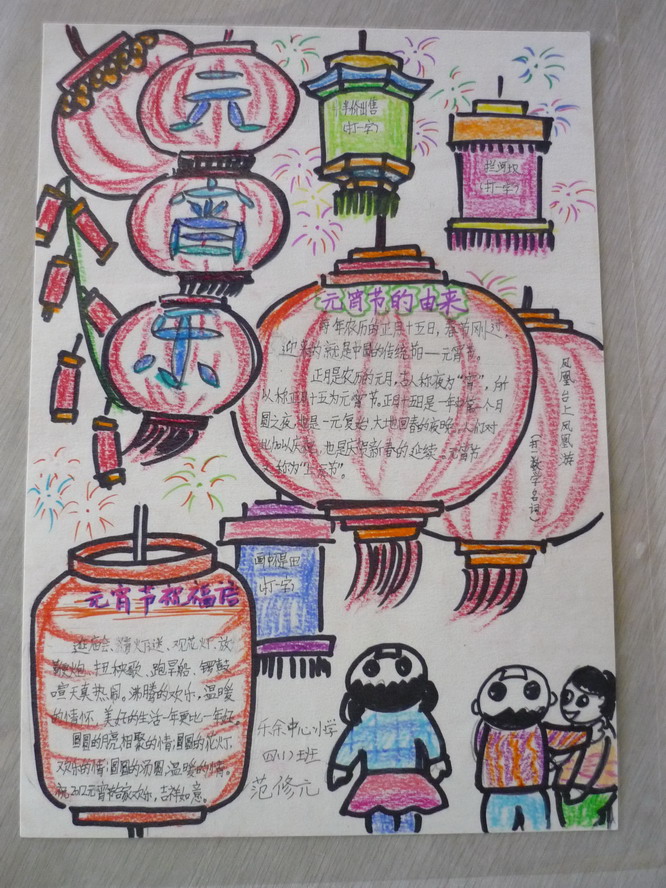 元
宵
乐
半价出售
(打一字)
(打一字)
元宵节的由来
每年农历的正月十五日,春节刚过,
迎来的就是中国的传统节——元宵节。
正月是农历的元月,古人称夜为“宵”,所
以称正月十五为元宵节。正月十五日是一年中第一个月
圆之夜,也是一元复始,大地回春的夜晚,人们对
此加以庆祝,也是庆贺新春的延续。元宵节
又称为“上元节”。
凤凰台上凤凰游
(打一数学名词)
(打一字)
元宵节祝福语
逛庙会、猜灯谜、观花灯、放
鞭炮、扭秧歌、跑旱船、锣鼓
喧天真热闹,沸腾的欢乐,温暖
的情怀,美好的生活一年更比一年
圆圆的月亮,相聚的情;圆圆的花灯,
欢乐的情;圆圆的汤圆,温暖的情。
祝2012元宵欢乐,吉祥如意。
乐余中心小学
四(1)班
范修元